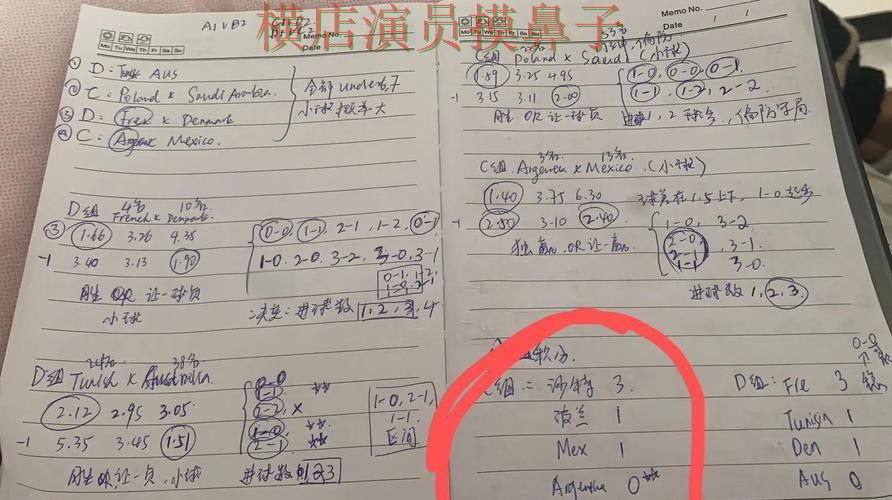 横店演员摸鼻子
A1 V B2
Memo No.
Date
Mo Tu We Th Fr Sa Su
① D: Tunis AUS
② C: Poland x Saudi Arabia.
③ D: Fren x Denmark
④ C: Argentina Mexico.
全部 under 6,7
小球概率大
D组 4名 10名
French x Denmark
③ 1.66 3.26 4.35
-1 3.40 3.13 1.90
胜 OR 让一球负
小球
0-0, 1-1, 2-1, 1-2, 0-1
1-0, 2-0, 3-2, 3-0, 3-1
进球数 1, 2, 3, 4
38名
D组 Tunish x Australia.
2.12 2.95 3.05
-1 5.35 3.45 1.51
胜 OR 让一负, 小球
0-0
1-1
2-2 x
1-0 **
2-1 **
1-0, 2-1,
1-1
区间
进球数 0 1 2 3
Memo No.
Date / /
Mo Tu We Th Fr Sa Su
C组 Poland x Saud (小球)
1.59 3.25 4.95
-1 3.15 3.11 2.00
胜 OR 让一球负
1-0, 0-0, 0-1,
1-1, 1-2, 2-2
进球 1, 2 球
3名 13名
C组 Argentina x Mexico. (小球)
1.40 3.75 6.30
球差在 1.5 上下, 1-0 起步
-1 2.50 3.10 2.40
独赢 OR 让一赢
1-0, 3-2
2-0, 3-1.
2-1
1-1 3-0.
进球数 1, 2, 3.
积分.
C组: 沙特 3.
波兰 1
Mex 1
Argentina 0 **
0-0
D组: Fre 3
Tunisia 1
Den 1
AUS 0